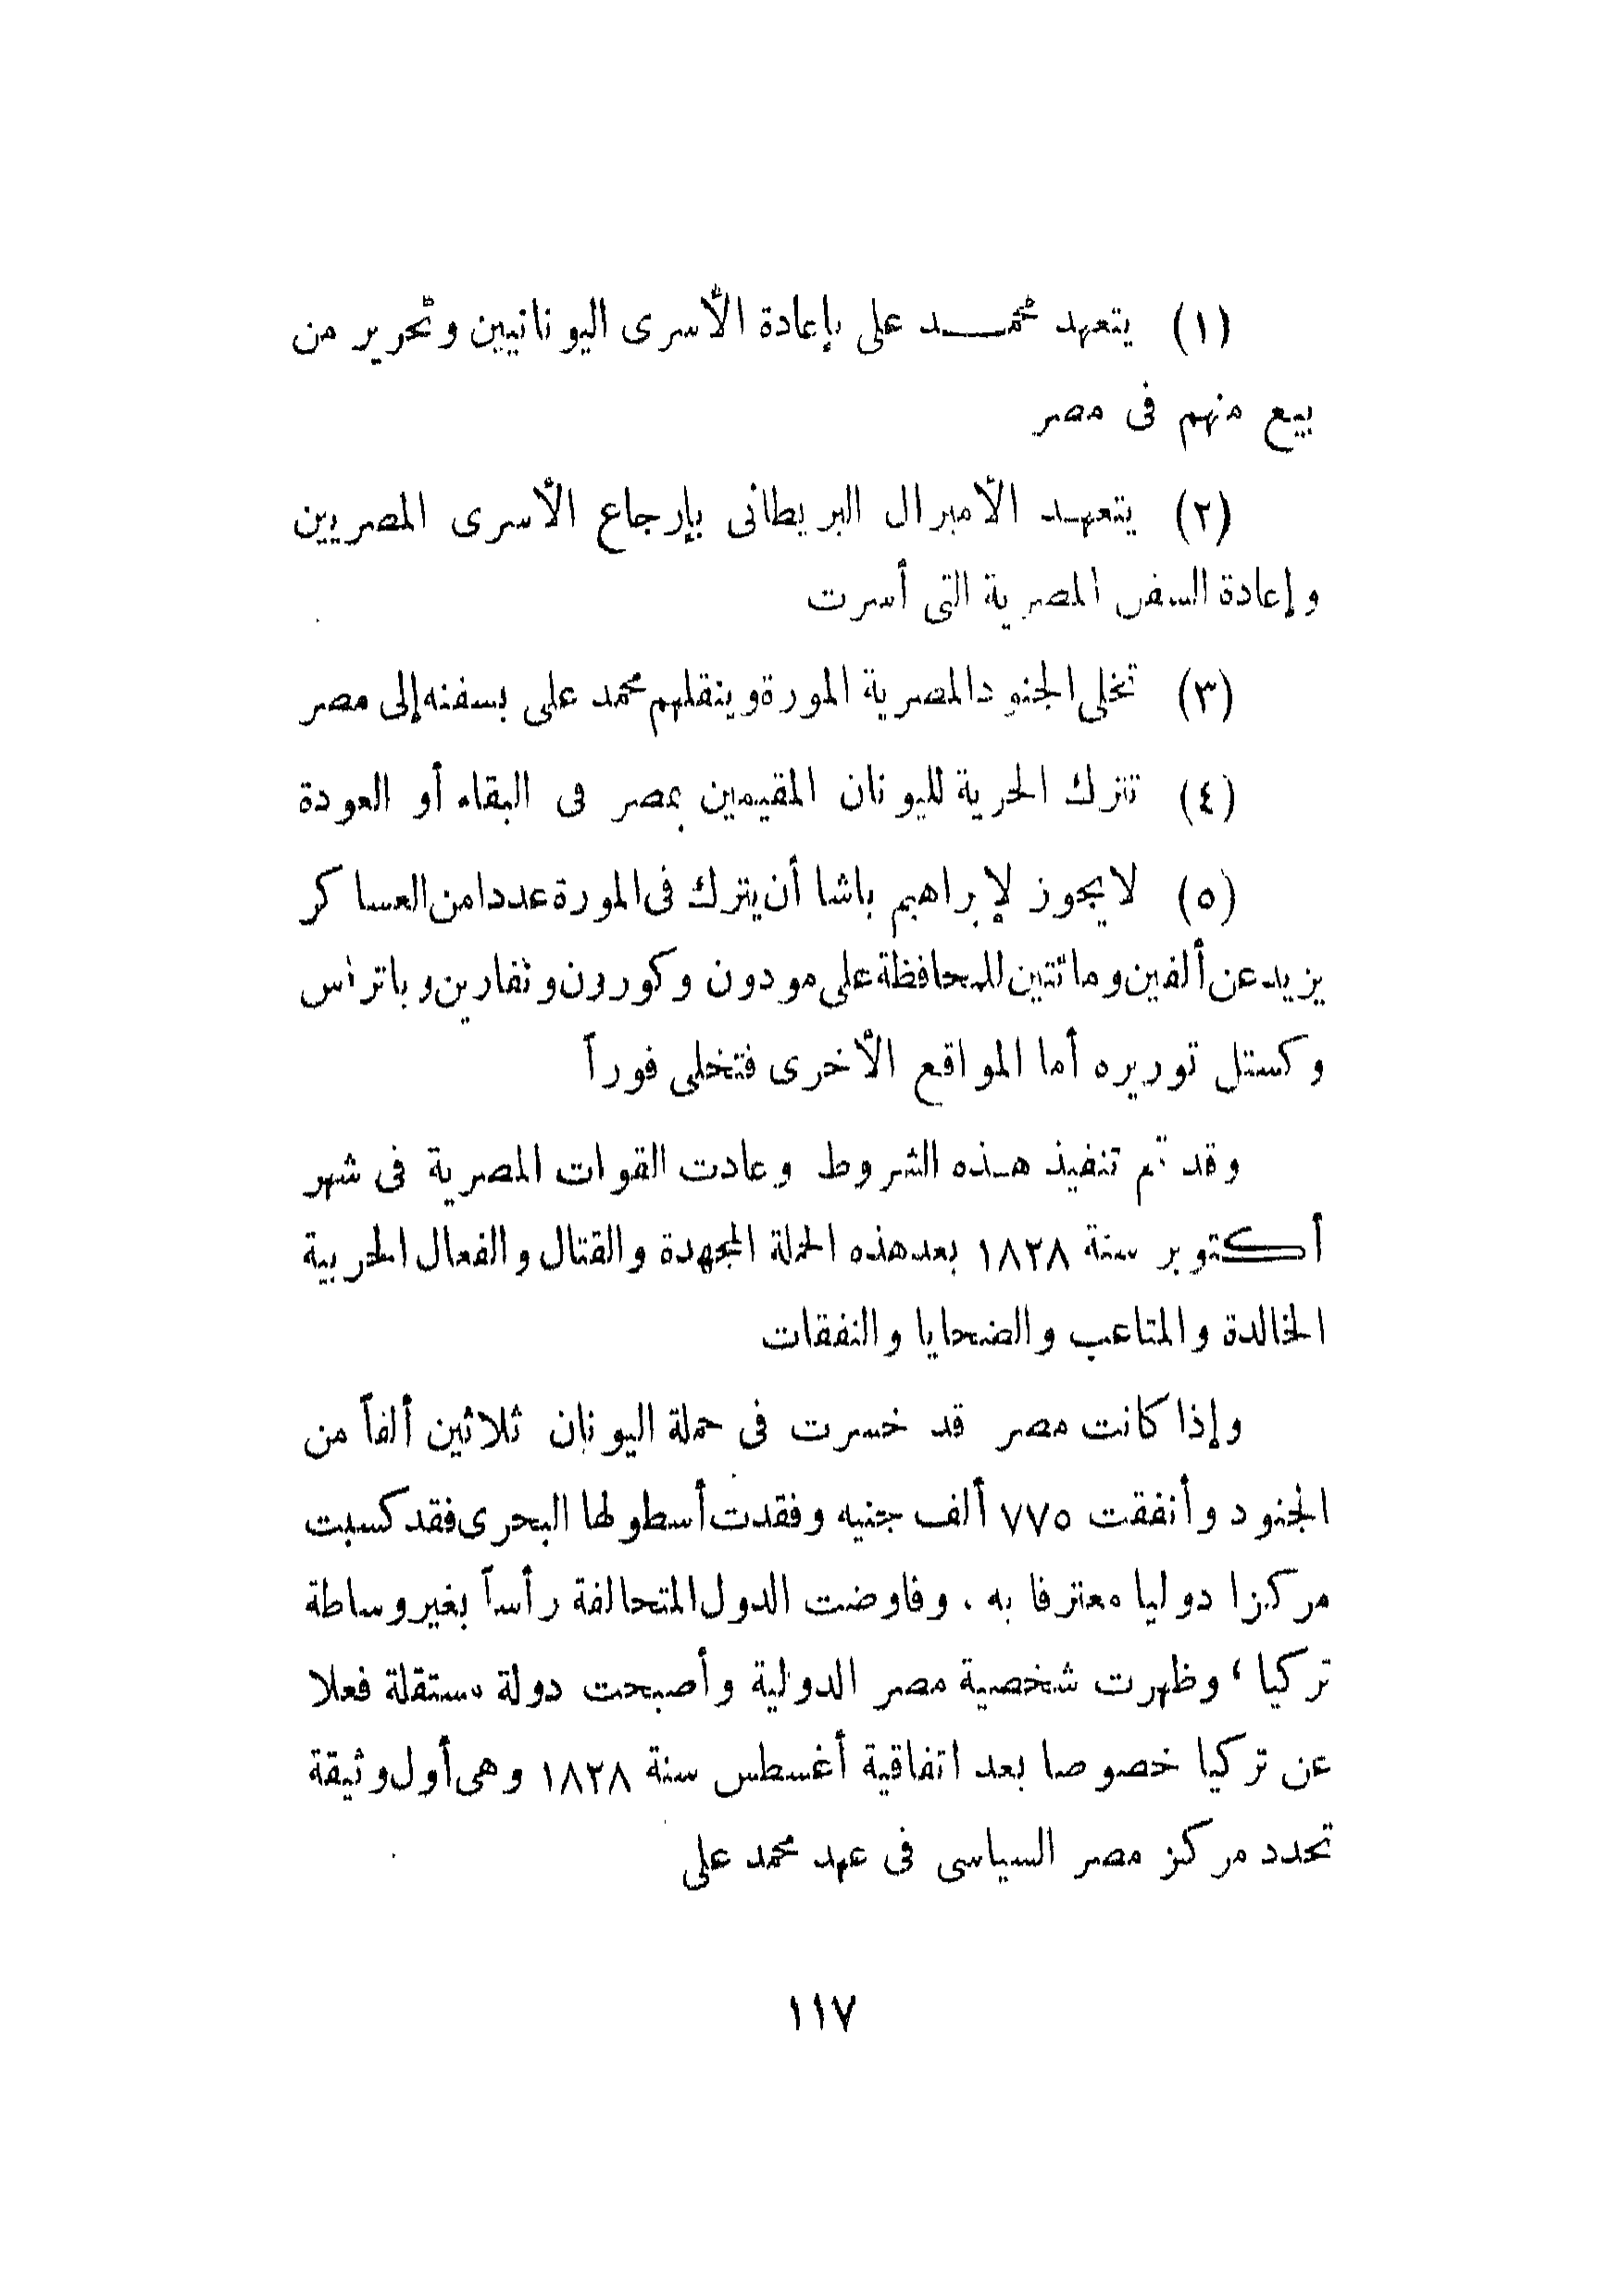 (١) يتعهد محمـــد على بإعادة الأسرى اليونانيين وتحرير من
بيع منهم فى مصر
(٢) يتعهـد الأميرال البريطانى بإرجاع الأسرى المصريين
وإعادة السفن المصرية التى أسرت
(٣) تخلى الجنود المصرية المورة وينقلهم محمد على بسفنه إلى مصر
(٤) تترك الحرية لليونان المقيمين بمصر فى البقاء أو العودة
(٥) لا يجوز لإبراهيم باشا أن يترك فى المورة عددا من العساكر
يزيد عن ألفين ومائتين للمحافظة على مودون وكورون ونفارين وباتراس
وكستل توريره أما المواقع الأخرى فتخلى فوراً
وقد تم تنفيذ هـذه الشروط وعادت القوات المصرية فى شهر
أكتوبر سنة ١٨٢٨ بعد هذه الحملة المجهدة والقتال والفعال الحربية
الخالدة والمتاعب والضحايا والنفقات
وإذا كانت مصر قد خسرت فى حملة اليونان ثلاثين ألفاً من
الجنود وأنفقت ٧٧٥ ألف جنيه وفقدت أسطولها البحرى فقد كسبت
مركزا دوليا معترفا به . وفاوضت الدول المتحالفة رأساً بغير وساطة
تركيا ، وظهرت شخصية مصر الدولية وأصبحت دولة مستقلة فعلا
عن تركيا خصوصا بعد اتفاقية أغسطس سنة ١٨٢٨ وهى أول وثيقة
تحدد مركز مصر السياسى فى عهد محمد على
١١٧